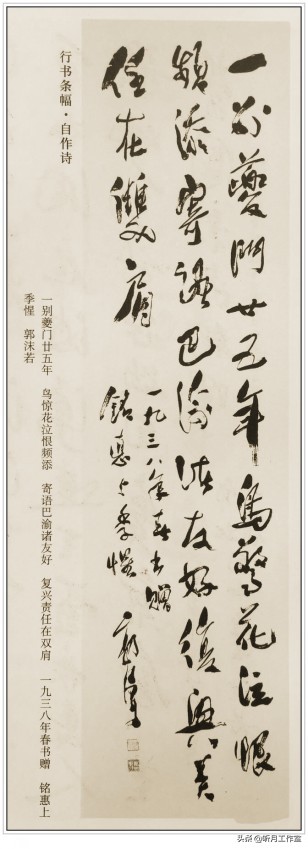 一别夔門廿五年鳥驚花泣恨
頻添寄語巴渝諸友好復興責
任在雙肩
一九三八年春書贈
銘惠上季惺 郭沫若
行书条幅·自作诗
一别夔门廿五年 鸟惊花泣恨频添 寄语巴渝诸友好 复兴责任在双肩 一九三八年春书赠 铭惠上
季惺 郭沫若
头条 @昕月工作室